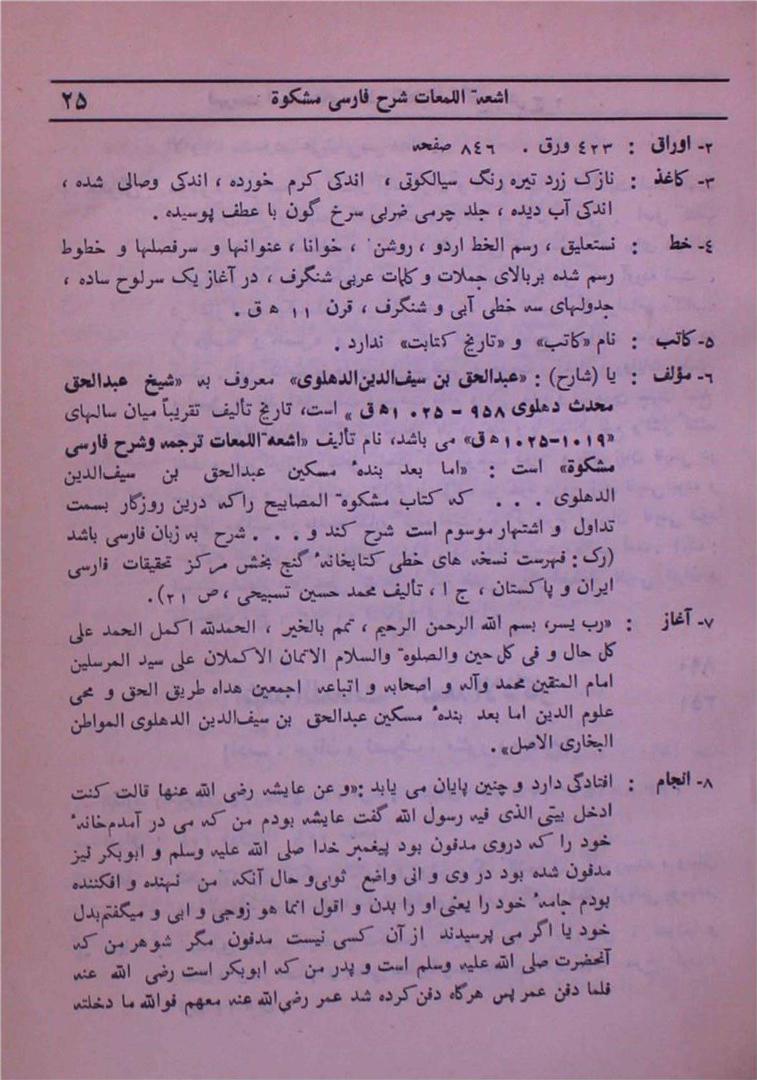 اشعة اللمعات شرح فارسی مشکوة ۲۵
۲- اوراق : ٤٢٣ ورق . ٨٤٦ صفحه
۳- کاغذ : نازک زرد تیره رنگ سیالکوتی ، اندکی کرم خورده ، اندکی وصالی شده ،
اندکی آب دیده ، جلد چرمی ضربی سرخ گون با عطف پوسیده .
٤- خط : نستعلیق ، رسم الخط اردو ، روشن ، خوانا ، عنوانها و سرفصلها و خطوط
رسم شده بربالای جملات و کلمات عربی شنگرف ، در آغاز یک سرلوح ساده ،
جدولهای سه خطی آبی و شنگرف ، قرن ۱۱ ه ق .
۵- کاتب : نام «کاتب» و «تاریخ کتابت» ندارد .
۶- مؤلف : یا (شارح) : «عبدالحق بن سیف‌الدین‌الدهلوی» معروف به «شیخ عبدالحق
محدث دهلوی ۹۵۸ - ۱۰۲۵ ه‍ ق » است، تاریخ تألیف تقریباً میان سالهای
«۱۰۱۹-۱۰۲۵ ه‍ ق» می باشد، نام تألیف «اشعةاللمعات ترجمه وشرح فارسی
مشکوة» است : «اما بعد بندهٔ مسکین عبدالحق بن سیف‌الدین
الدهلوی . . . که کتاب مشکوة المصابیح راکه درین روزگار بسمت
تداول و اشتهار موسوم است شرح کند و . . . شرح به زبان فارسی باشد
(رک : فهرست نسخه های خطی کتابخانهٔ گنج بخش مرکز تحقیقات فارسی
ایران و پاکستان ، ج ۱ ، تألیف محمد حسین تسبیحی ، ص ۲۱).
۷- آغاز : «رب یسر، بسم الله الرحمن الرحیم ، تمم بالخیر ، الحمدلله اکمل الحمد علی
کل حال و فی کل حین والصلوة والسلام الاتمان الاکملان علی سید المرسلین
امام المتقین محمد وآله و اصحابه و اتباعه اجمعین هداه طریق الحق و محی
علوم الدین اما بعد بندهٔ مسکین عبدالحق بن سیف‌الدین الدهلوی المواطن
البخاری الاصل».
۸- انجام : افتادگی دارد و چنین پایان می یابد : «و عن عایشه رضی الله عنها قالت کنت
ادخل بیتی الذی فیه رسول الله گفت عایشه بودم من که می در آمدم‌خانهٔ
خود را که دروی مدفون بود پیغمبر خدا صلی الله علیه وسلم و ابوبکر نیز
مدفون شده بود در وی و انی واضع ثوبی‌و حال آنکه من نهنده و افکننده
بودم جامهٔ خود را یعنی‌او را بدن و اقول انما هو زوجی و ابی و میگفتم‌بدل
خود یا اگر می پرسیدند از آن کسی نیست مدفون مگر شوهر من که
آنحضرت صلی الله علیه وسلم است و پدر من که ابوبکر است رضی الله عنه
فلما دفن عمر پس هرگاه دفن کرده شد عمر رضی‌الله عنه معهم فوالله ما دخلته